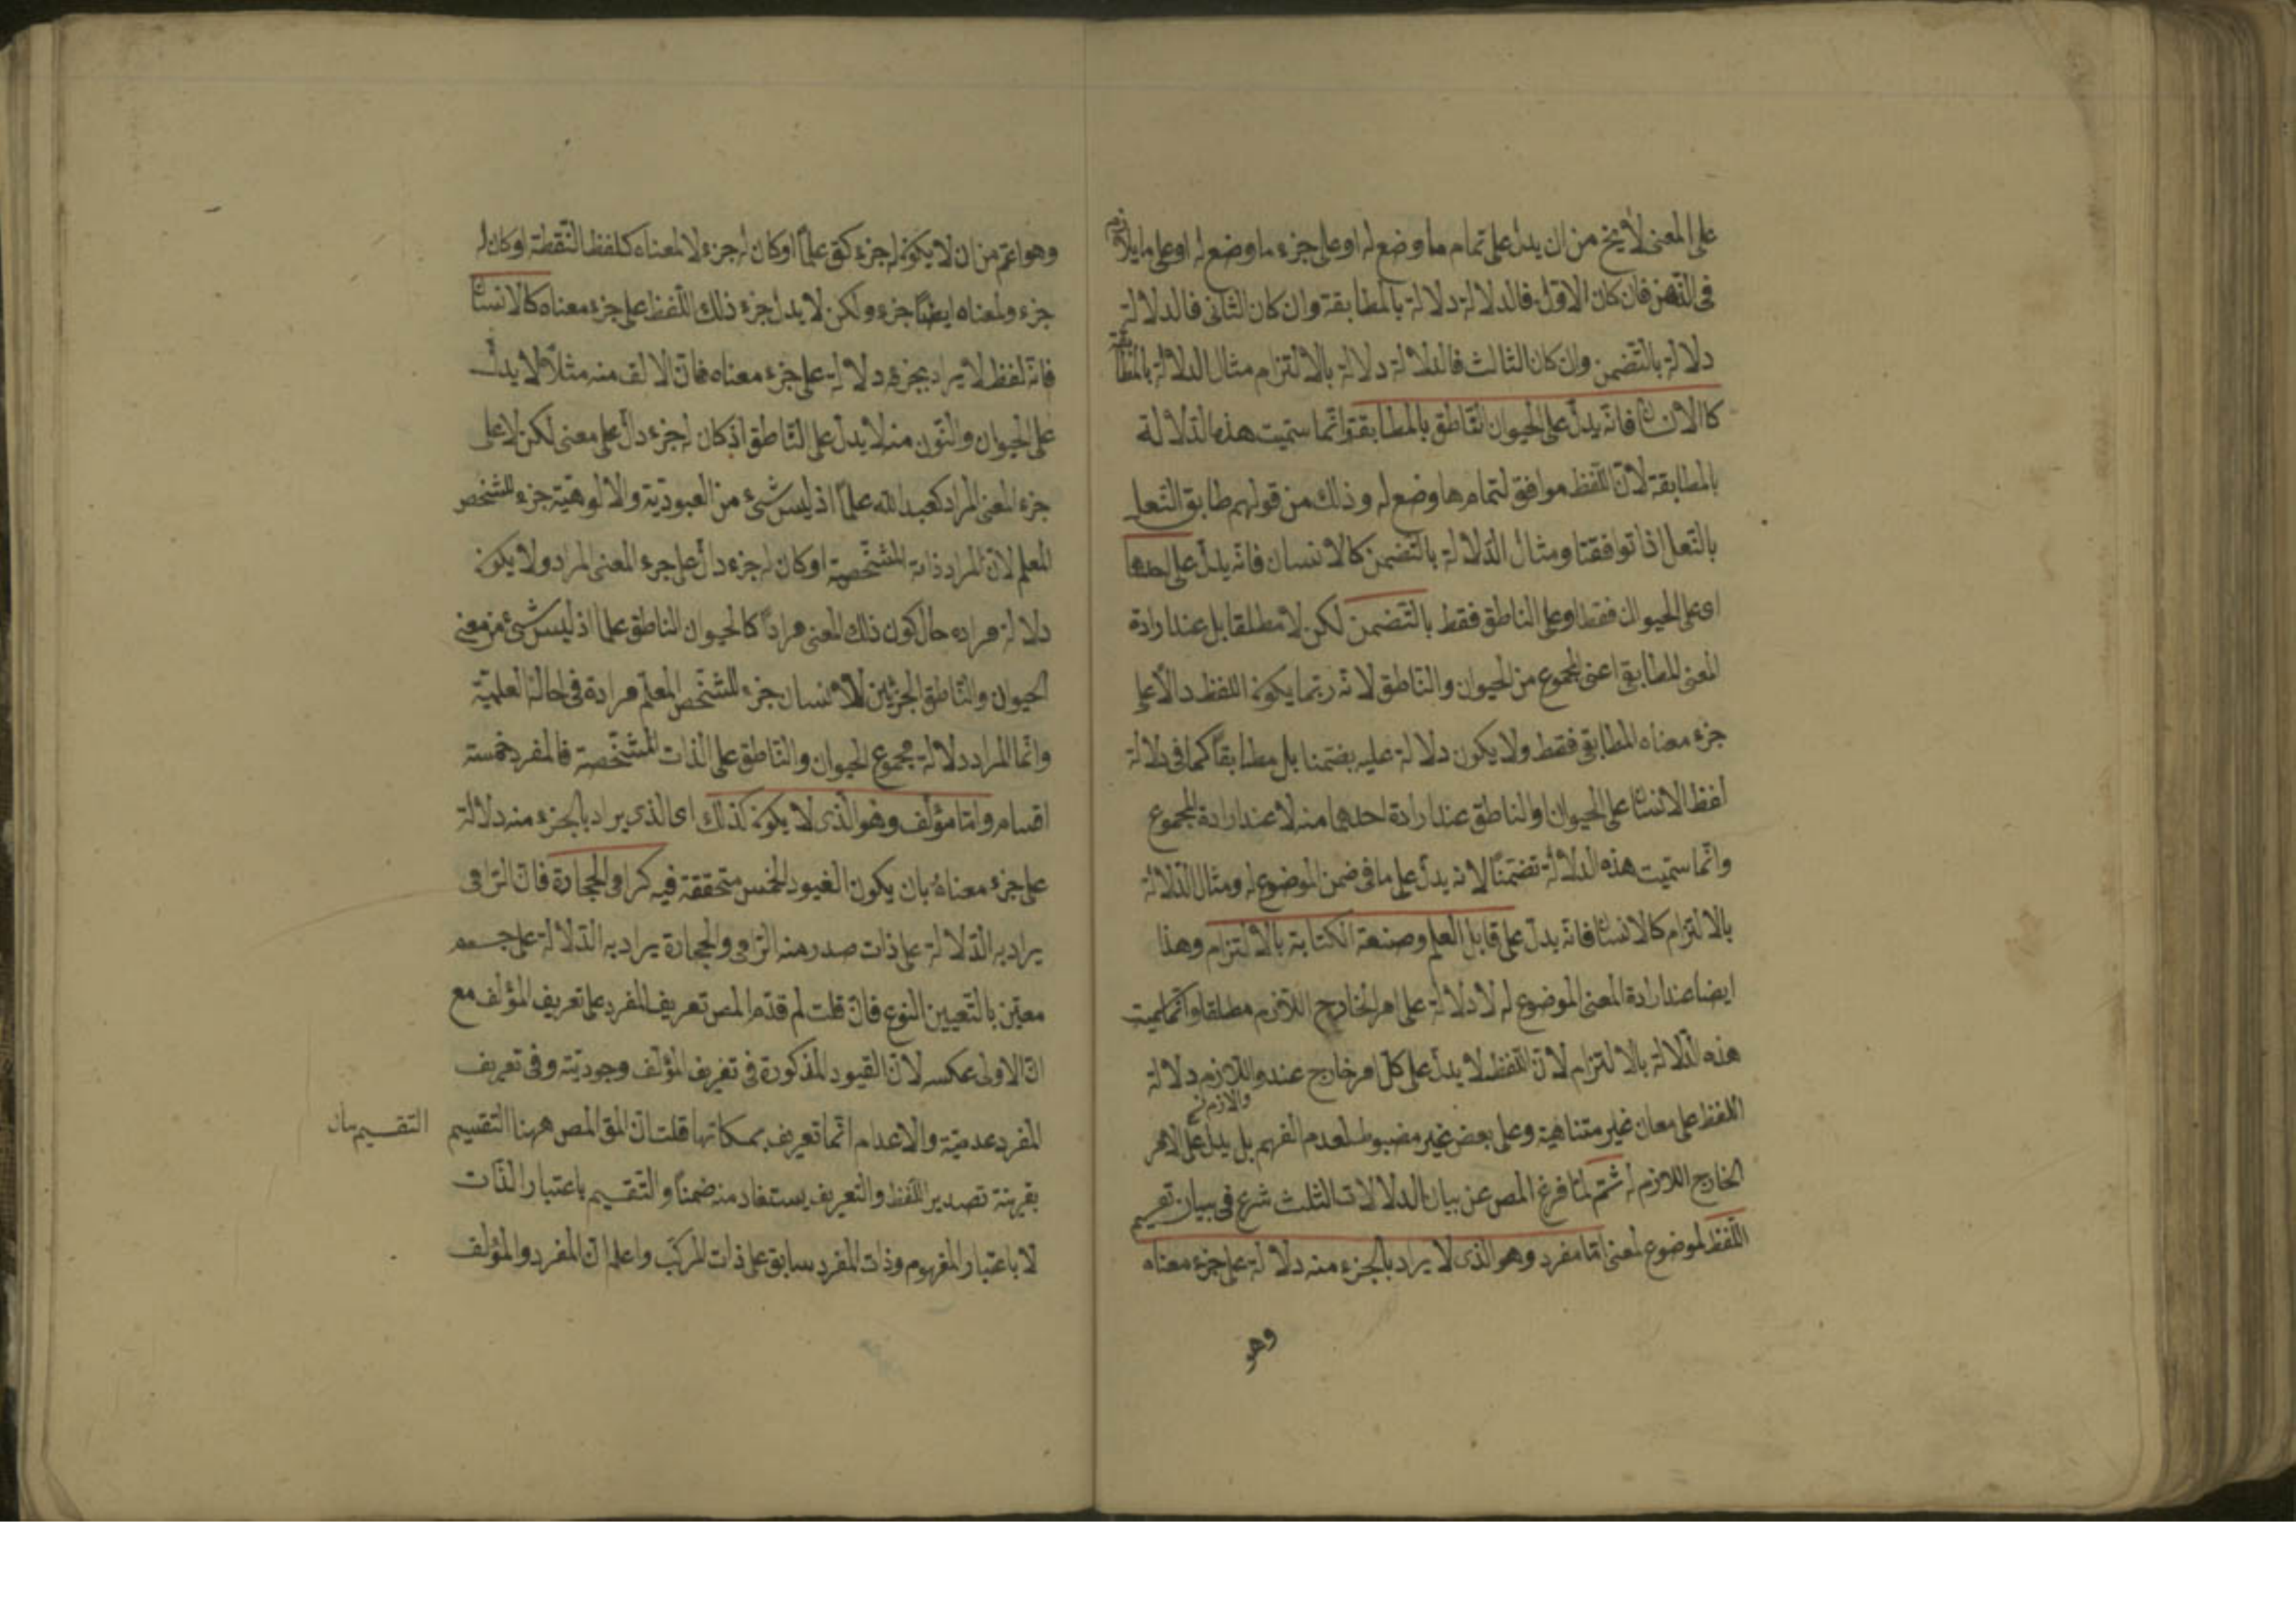 على المعنى لايخ من ان يدل على تمام ما وضع له او على جزء ما وضع له او على ما يلازمه
فى الذهن فان كان الاول فالدلالة دلالة بالمطابقة وان كان الثانى فالدلالة
دلالة بالتضمن وان كان الثالث فالدلالة دلالة بالالتزام مثال الدلالة بالمطابقة
كالانسان فانه يدل على الحيوان الناطق بالمطابقة وانما سميت هذه الدلالة
بالمطابقة لان اللفظ موافق لتمام ما وضع له وذلك من قولهم طابق النعل
بالنعل اذا توافقتا ومثال الدلالة بالتضمن كالانسان فانه يدل على احدهما
اى على الحيوان فقط او على الناطق فقط بالتضمن لكن لا مطلقا بل عند ارادة
المعنى المطابقى اعنى المجموع من الحيوان والناطق لانه ربما يكون اللفظ دالا على
جزء معناه المطابقى فقط ولا يكون دلالة عليه بضتمنا بل مطابقا كما فى دلالة
لفظ الانسان على الحيوان او الناطق عند ارادة احدهما منه لا عند ارادة المجموع
وانما سميت هذه الدلالة تضمنا لانه يدل على ما فى ضمن الموضوع له ومثال الدلالة
بالالتزام كالانسان فانه يدل على قابل العلم وصنعة الكتابة بالالتزام وهذا
ايضا عند ارادة المعنى الموضوع له لا دلالة على امر الخارج اللازم مطلقا وانما سميت
هذه الدلالة بالالتزام لان اللفظ لا يدل على كل امر خارج عنه واللازم دلالة
والازم نح
اللفظ على معان غير متناهية وعلى بعض غير مضبوط لعدم الفهم بل يدل على الامر
الخارج اللازم له ثم لما فرغ المص عن بيان الدلالات الثلث شرع فى بيان تقسيم
اللفظ الموضوع لمعنى اما مفرد وهو الذى لا يراد بالجزء منه دلالة على جزء معناه
وهو
وهو اعم من ان لا يكون له جزء كق علما او كان له جزء لا لمعناه كلفظ النقطة او كان له
جزء ولمعناه ايضا جزء ولكن لا يدل جزء ذلك اللفظ على جزء معناه كالانسان
فانه لفظ لا يراد بجزئه دلالة على جزء معناه فان الالف منه مثلا لا يدل
على الحيوان والنون منه لا يدل على الناطق اذ كان له جزء دال على معنى لكن لا على
جزء المعنى المراد كعبد الله علما اذ ليس شئ من العبودية والالوهية جزء للشخص
المعلم لان المراد ذاته المشخصة او كان له جزء دال على جزء المعنى المراد ولا يكون
دلالة مراده حال كون ذلك المعنى مرادا كالحيوان الناطق علما اذ ليس شئ من معنى
الحيوان والناطق الجزئين للانسان جزء للشخص المعلم مرادة فى حالة العلمية
وانما المراد دلالة مجموع الحيوان والناطق على الذات المشخصة فالمفرد خمسة
اقسام واما مؤلف وهو الذى لا يكون كذلك اى الذى يراد بالجزء منه دلالة
على جزء معناه بان يكون القيود الخمس متحققة فيه كرامى الحجارة فان الرامى
يراد به الدلالة على ذات صدر منه الرمى والحجارة يراد به الدلالة على جسم
معين بالتعيين النوع فان قلت لم قدم المص تعريف المفرد على تعريف المؤلف مع
ان الاولى عكسه لان القيود المذكورة فى تعريف المؤلف وجودية وفى تعريف
المفرد عدمية والاعدام انما تعريف بمكاتها قلت ان المق المص ههنا التقسيم
التقسيم بيان
بقرينة تصدير اللفظ والتعريف يستفاد منه ضمنا والتقسيم باعتبار الذات
لا باعتبار المفهوم وذات المفرد سابق على ذات المركب واعلم ان المفرد والمؤلف